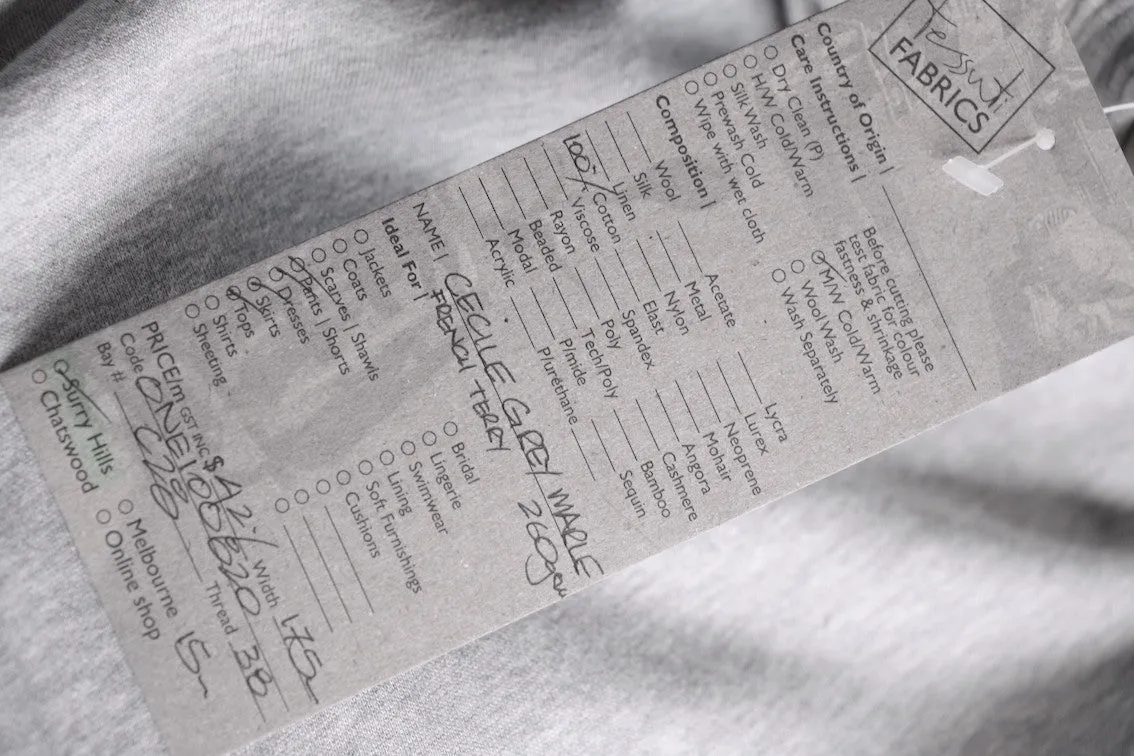 Tessuti
FABRICS
Country of Origin |
Care Instructions |
Dry Clean (P)
H/W Cold/Warm
Silk Wash
Prewash Cold
Wipe with wet cloth
Before cutting please
test fabric for colour
fastness & shrinkage
M/W Cold/Warm
Wool Wash
Wash Separately
Composition |
Wool
Silk
Linen
100% Cotton
Viscose
Rayon
Beaded
Modal
Acrylic
Acetate
Metal
Nylon
Elast
Spandex
Poly
Tech/Poly
P/mide
Pluréthane
Lycra
Lurex
Neoprene
Mohair
Angora
Cashmere
Bamboo
Sequin
NAME | GREY MARLE
FRENCH TERRY 260gsm
Ideal For |
Jackets
Coats
Scarves | Shawls
Pants | Shorts
Dresses
Skirts
Tops
Shirts
Sheeting
Bridal
Lingerie
Swimwear
Lining
Soft Furnishings
Cushions
PRICE/m GST INC $ Width 175
Code Thread 38
Bay # C28
Surry Hills
Chatswood
Melbourne 15m
Online shop